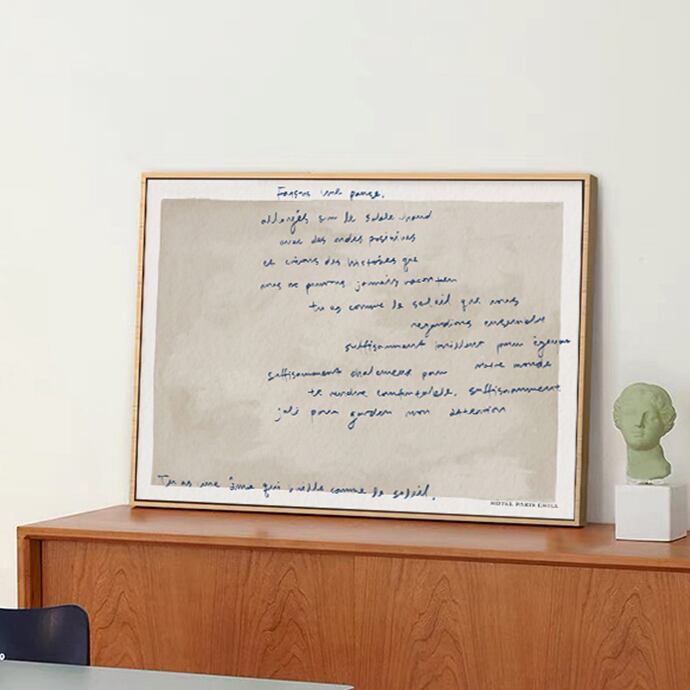 Faisons une pause.
allongés sur le sable chaud
avec des ondes positives
et créons des histoires que
nous ne pouvons jamais raconter
tu es comme le soleil que nous
regardions ensemble
suffisamment brillant pour
suffisamment chaleureux pour notre monde
te rendre confortable. suffisamment
joli pour garder mon attention
Tu as une âme qui brille comme le soleil.
HOTEL PARIS CHILL